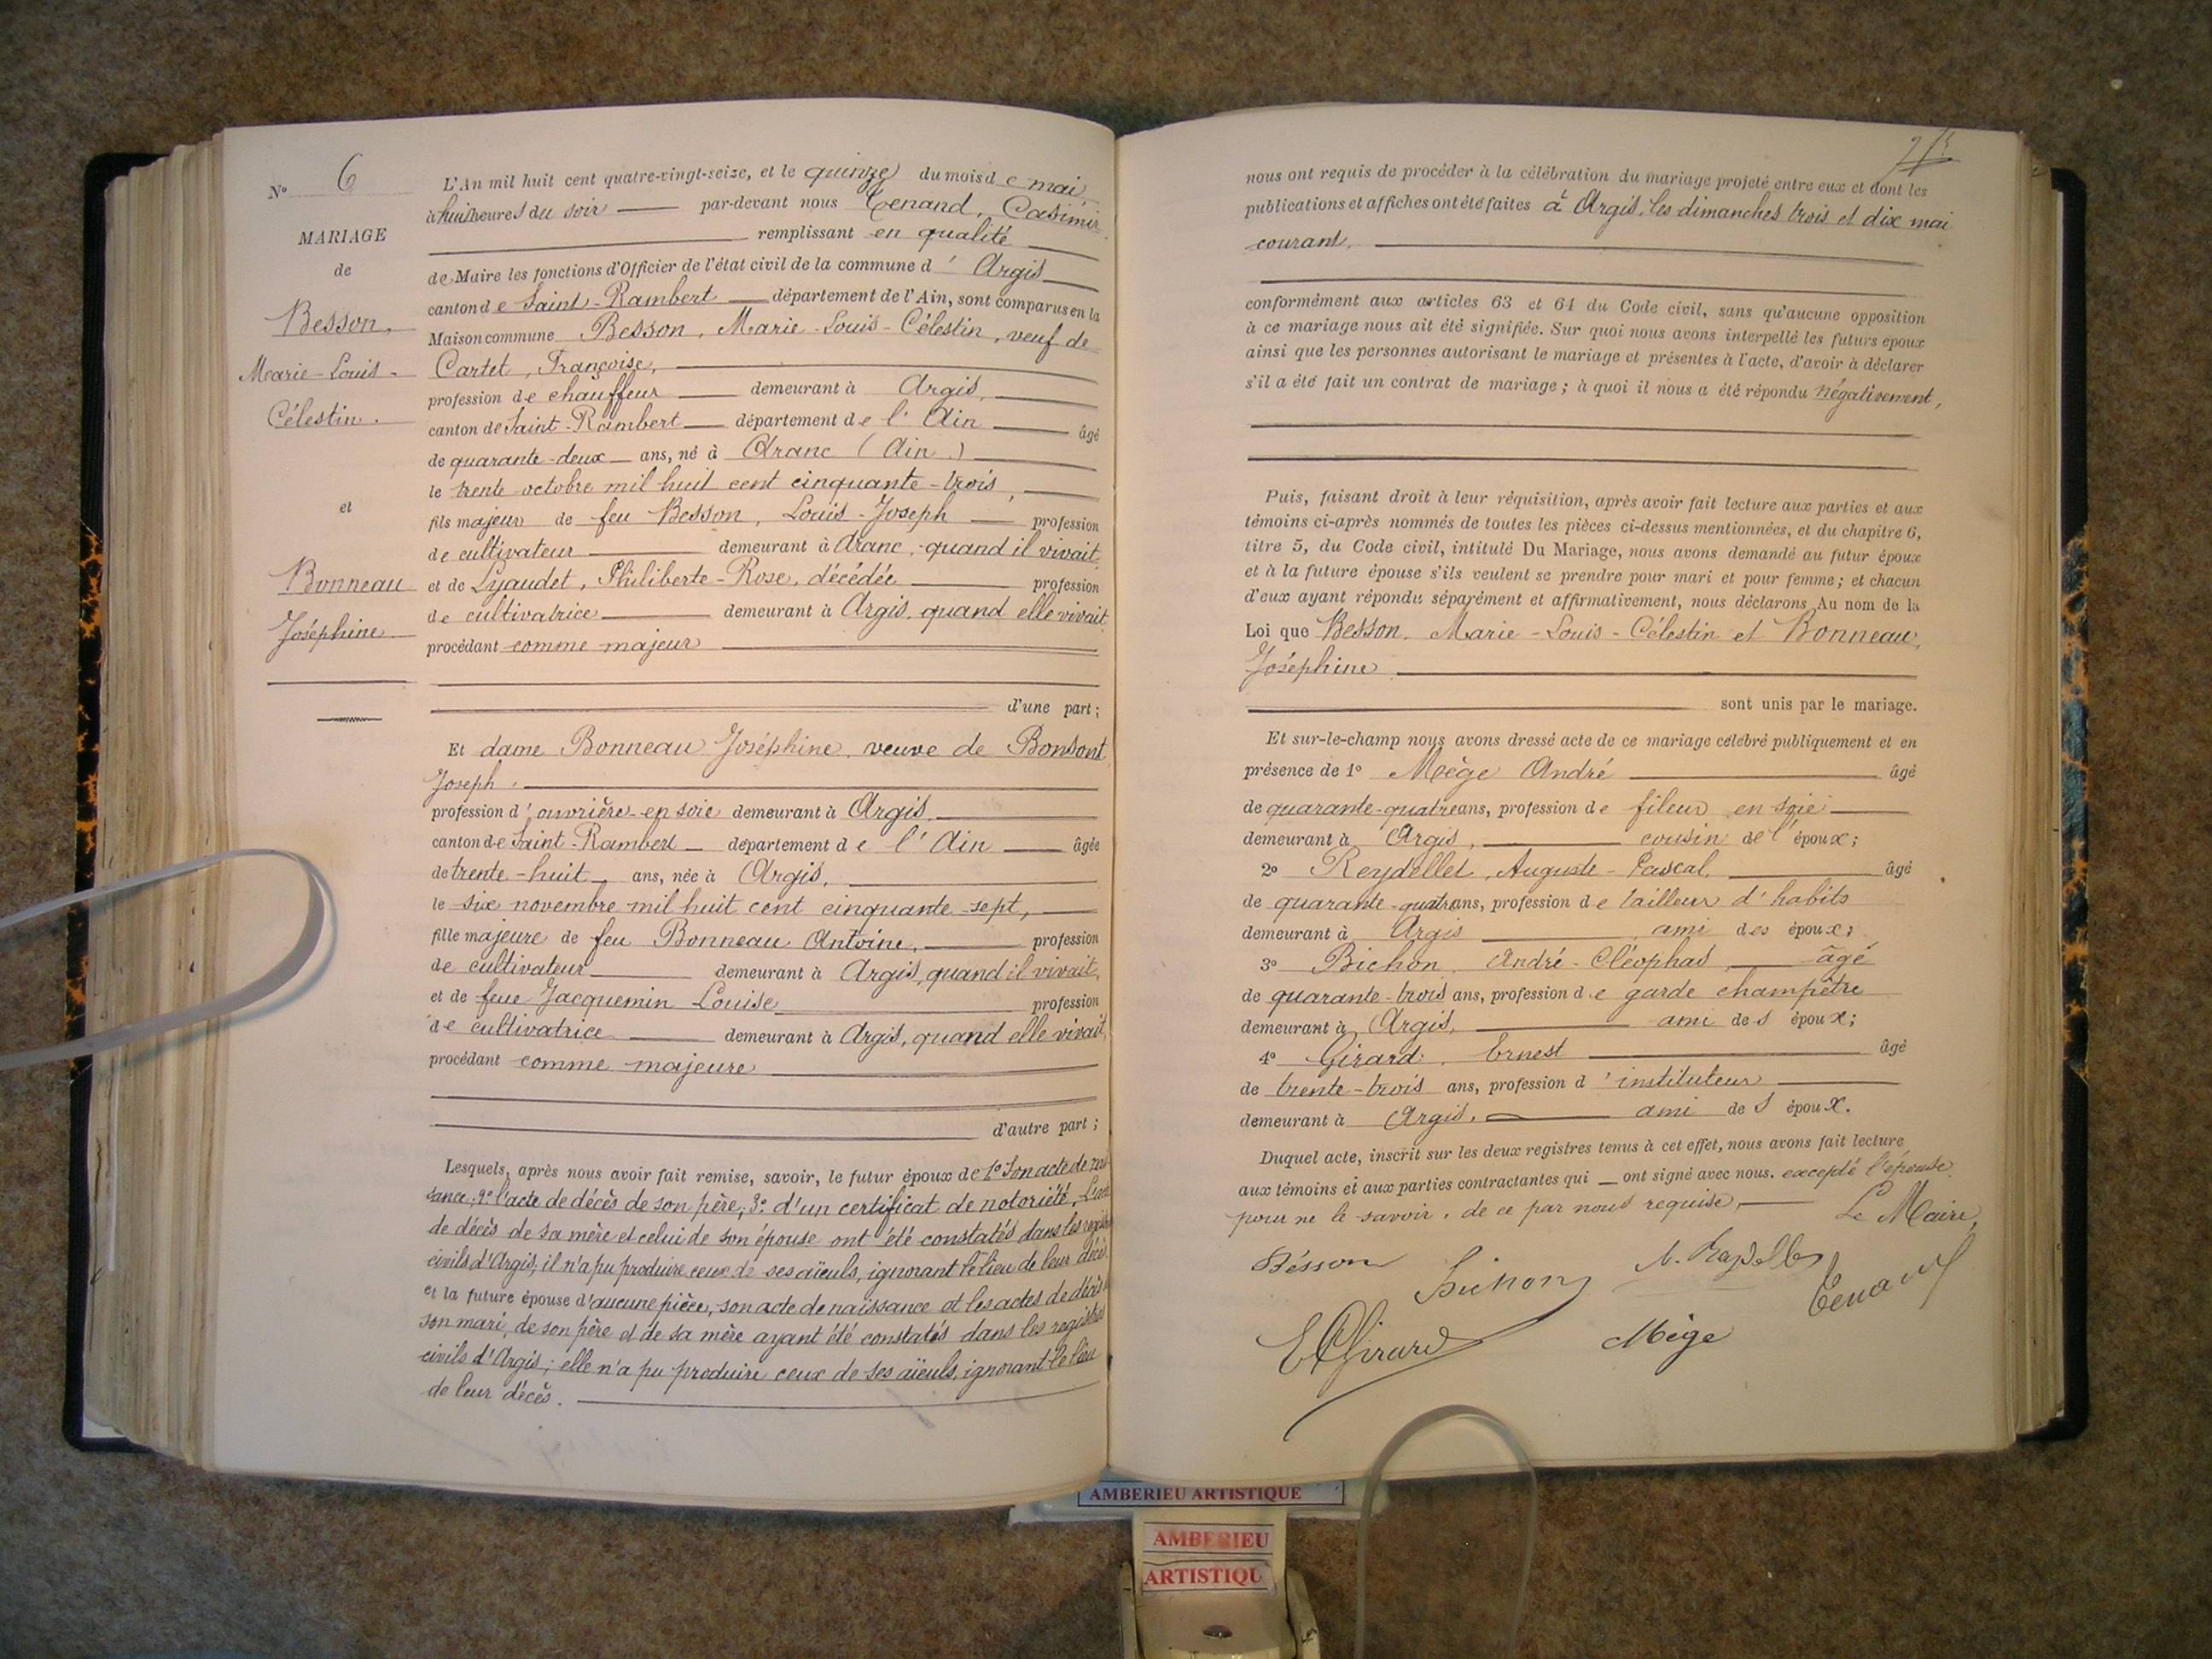 N° 6
MARIAGE
de
Besson,
Marie-Louis-
Célestin.
et
Bonneau
Joséphine
L'An mil huit cent quatre-vingt-seize, et le quinze du mois de mai,
à huit heures du soir par-devant nous Tenand, Casimir
remplissant en qualité
de Maire les fonctions d'Officier de l'état civil de la commune d'Argis
canton de Saint-Rambert département de l'Ain, sont comparus en la
Maison commune Besson, Marie-Louis-Célestin, veuf de
Cartet, Françoise,
profession de chauffeur demeurant à Argis,
canton de Saint-Rambert département de l'Ain âgé
de quarante-deux ans, né à Aranc (Ain.)
le trente octobre mil huit cent cinquante-trois,
fils majeur de feu Besson, Louis-Joseph profession
de cultivateur demeurant à Aranc, quand il vivait,
et de Lyaudet, Philiberte-Rose, décédée profession
de cultivatrice demeurant à Argis, quand elle vivait
procédant comme majeur
d'une part;
Et dame Bonneau Joséphine, veuve de Bonsont
Joseph,
profession d'ouvrière en soie demeurant à Argis,
canton de Saint-Rambert département de l'Ain âgée
de trente-huit ans, née à Argis,
le six novembre mil huit cent cinquante-sept,
fille majeure de feu Bonneau Antoine, profession
de cultivateur demeurant à Argis, quand il vivait,
et de feue Jacquemin Louise profession
de cultivatrice demeurant à Argis, quand elle vivait,
procédant comme majeure
d'autre part;
Lesquels, après nous avoir fait remise, savoir, le futur époux de 1° Son acte de nais
sance; 2° l'acte de décès de son père; 3° d'un certificat de notoriété. L'acte
de décès de sa mère et celui de son épouse ont été constatés dans les registres
civils d'Argis; il n'a pu produire ceux de ses aïeuls, ignorant le lieu de leur décès.
et la future épouse d'aucune pièce, son acte de naissance et les actes de décès de
son mari, de son père et de sa mère ayant été constatés dans les registres
civils d'Argis; elle n'a pu produire ceux de ses aïeuls, ignorant le lieu
de leur décès.
nous ont requis de procéder à la célébration du mariage projeté entre eux et dont les
publications et affiches ont été faites à Argis, les dimanches trois et dix mai
courant.
conformément aux articles 63 et 64 du Code civil, sans qu'aucune opposition
à ce mariage nous ait été signifiée. Sur quoi nous avons interpellé les futurs époux
ainsi que les personnes autorisant le mariage et présentes à l'acte, d'avoir à déclarer
s'il a été fait un contrat de mariage; à quoi il nous a été répondu négativement,
Puis, faisant droit à leur réquisition, après avoir fait lecture aux parties et aux
témoins ci-après nommés de toutes les pièces ci-dessus mentionnées, et du chapitre 6,
titre 5, du Code civil, intitulé Du Mariage, nous avons demandé au futur époux
et à la future épouse s'ils veulent se prendre pour mari et pour femme; et chacun
d'eux ayant répondu séparément et affirmativement, nous déclarons Au nom de la
Loi que Besson, Marie-Louis-Célestin et Bonneau,
Joséphine
sont unis par le mariage.
Et sur-le-champ nous avons dressé acte de ce mariage célébré publiquement et en
présence de 1° Mège André âgé
de quarante-quatre ans, profession de fileur en soie
demeurant à Argis, cousin de l'époux;
2° Reydellet, Auguste-Pascal, âgé
de quarante-quatre ans, profession de tailleur d'habits
demeurant à Argis ami des époux;
3° Bichon, André-Cléophas, âgé
de quarante-trois ans, profession de garde champêtre
demeurant à Argis, ami des époux;
4° Girard, Ernest âgé
de trente-trois ans, profession d'instituteur
demeurant à Argis, ami des époux.
Duquel acte, inscrit sur les deux registres tenus à cet effet, nous avons fait lecture
aux témoins et aux parties contractantes qui ont signé avec nous, excepté l'épouse
pour ne le savoir, de ce par nous requise,
Le Maire,
Bésson Bichon A. Reydellet Tenand
E Girard Mège
AMBERIEU ARTISTIQUE
AMBERIEU
ARTISTIQU